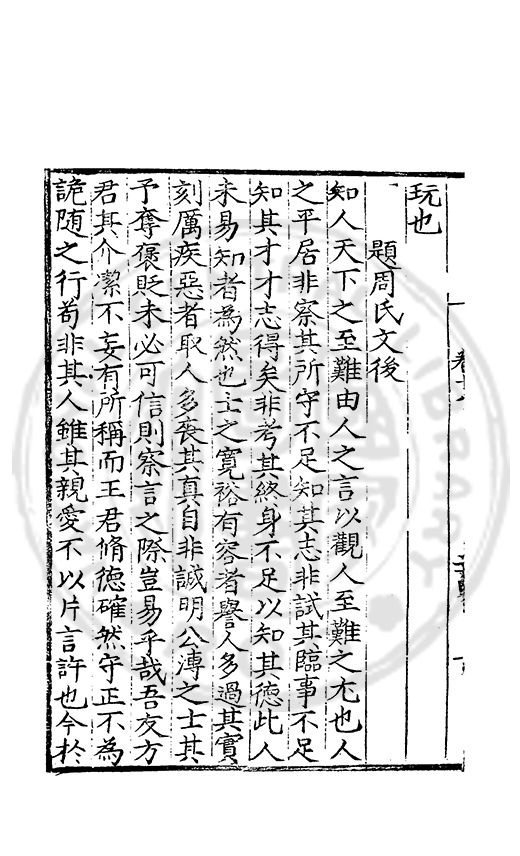 玩也
題周氏文後
知人天下之至難由人之言以觀人至難之尤也人
之平居非察其所守不足知其志非試其臨事不足
知其才才志得矣非考其終身不足以知其德此人
未易知者為然也士之寬裕有容者譽人多過其實
刻厲疾惡者取人多喪其真自非誠明公溥之士其
予奪褒貶未必可信則察言之際豈易乎哉吾友方
君其介潔不妄有所稱而王君脩德確然守正不為
詭随之行苟非其人雖其親愛不以片言許也今於